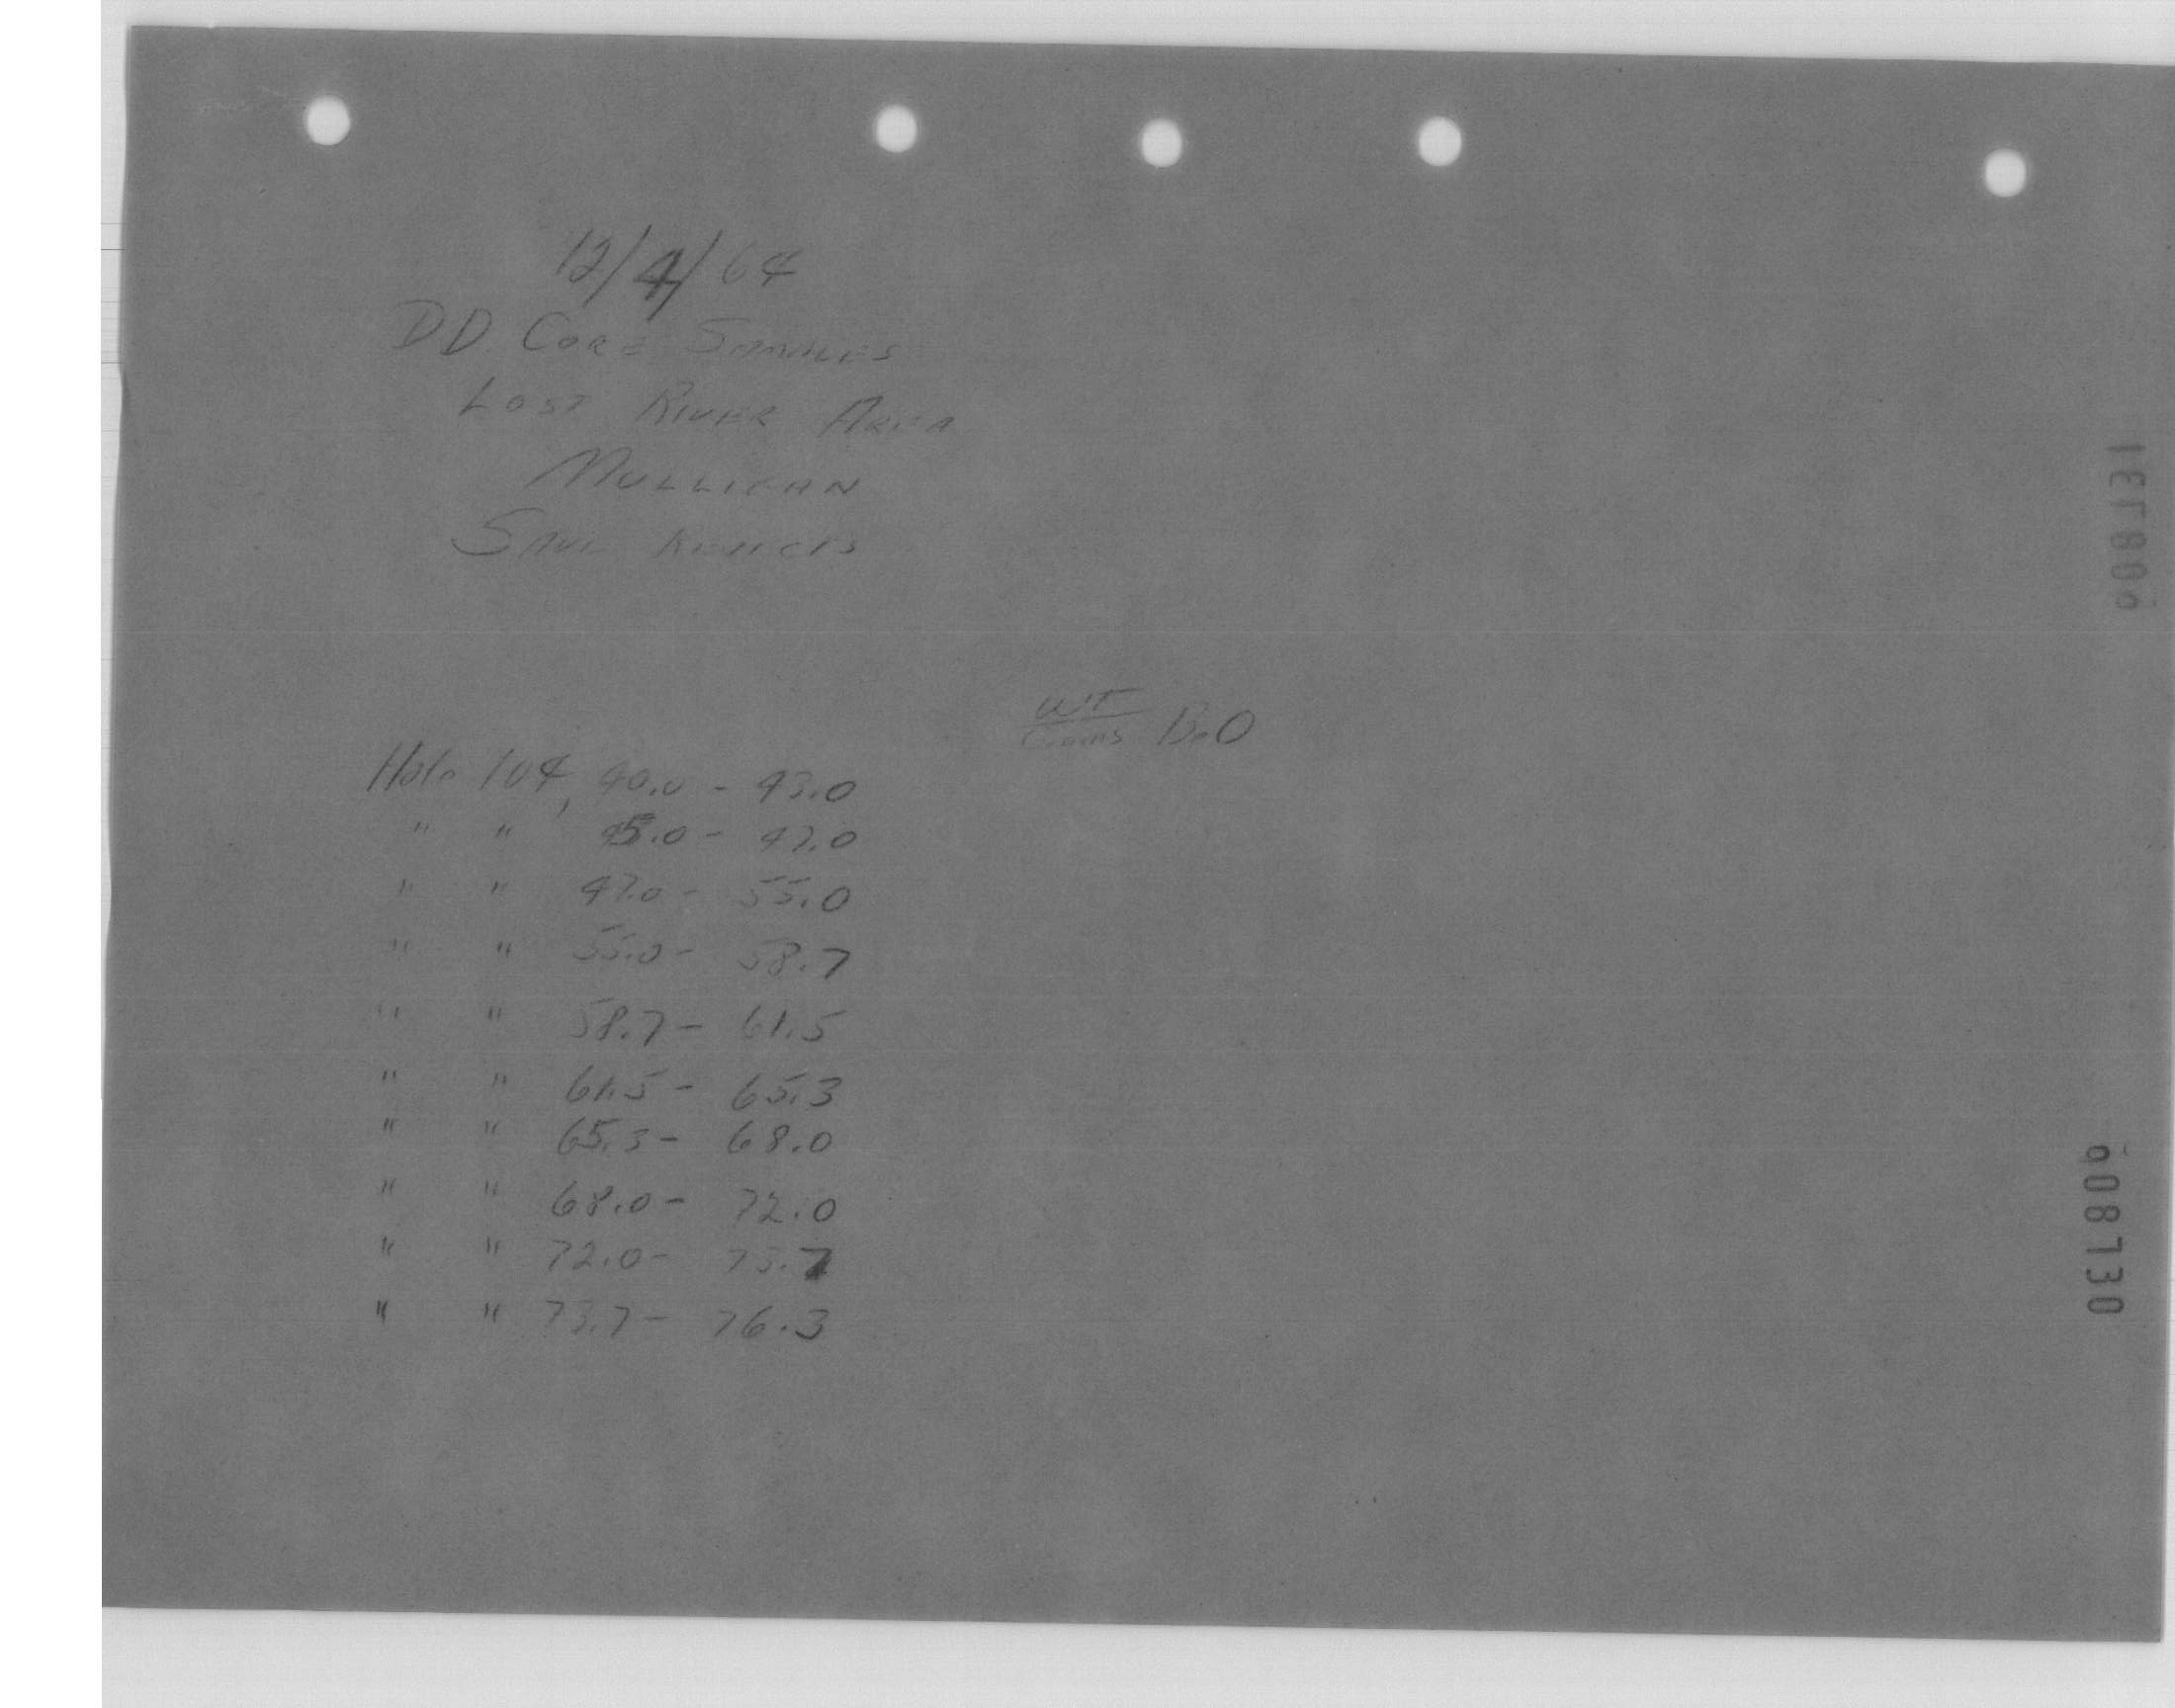 12/4/64
DD Core Samples
Lost River Area
Mulligan
Save Rejects
WT
Grams BeO
Hole 104, 40.0 - 43.0
" " 45.0 - 47.0
" " 47.0 - 55.0
" " 55.0 - 58.7
" " 58.7 - 61.5
" " 61.5 - 65.3
" " 65.3 - 68.0
" " 68.0 - 72.0
" " 72.0 - 73.7
" " 73.7 - 76.3